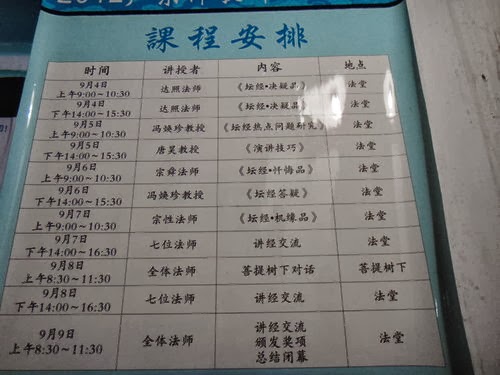 課程安排
时间 讲授者 内容 地点
9月4日
上午9:00~10:30 达照法师 《坛经•决疑品》 法堂
9月4日
下午14:00~15:30 达照法师 《坛经•决疑品》 法堂
9月5日
上午9:00~10:30 冯焕珍教授 《坛经热点问题研究》 法堂
9月5日
下午14:00~15:30 唐昊教授 《演讲技巧》 法堂
9月6日
上午9:00~10:30 宗舜法师 《坛经•忏悔品》 法堂
9月6日
下午14:00~15:30 冯焕珍教授 《坛经答疑》 法堂
9月7日
上午9:00~10:30 宗性法师 《坛经•机缘品》 法堂
9月7日
下午14:00~16:30 七位法师 讲经交流 法堂
9月8日
上午8:30~11:30 全体法师 菩提树下对话 菩提树下
9月8日
下午14:00~16:30 七位法师 讲经交流 法堂
9月9日
上午8:30~11:30 全体法师 讲经交流 法堂
颁发奖项
总结闭幕